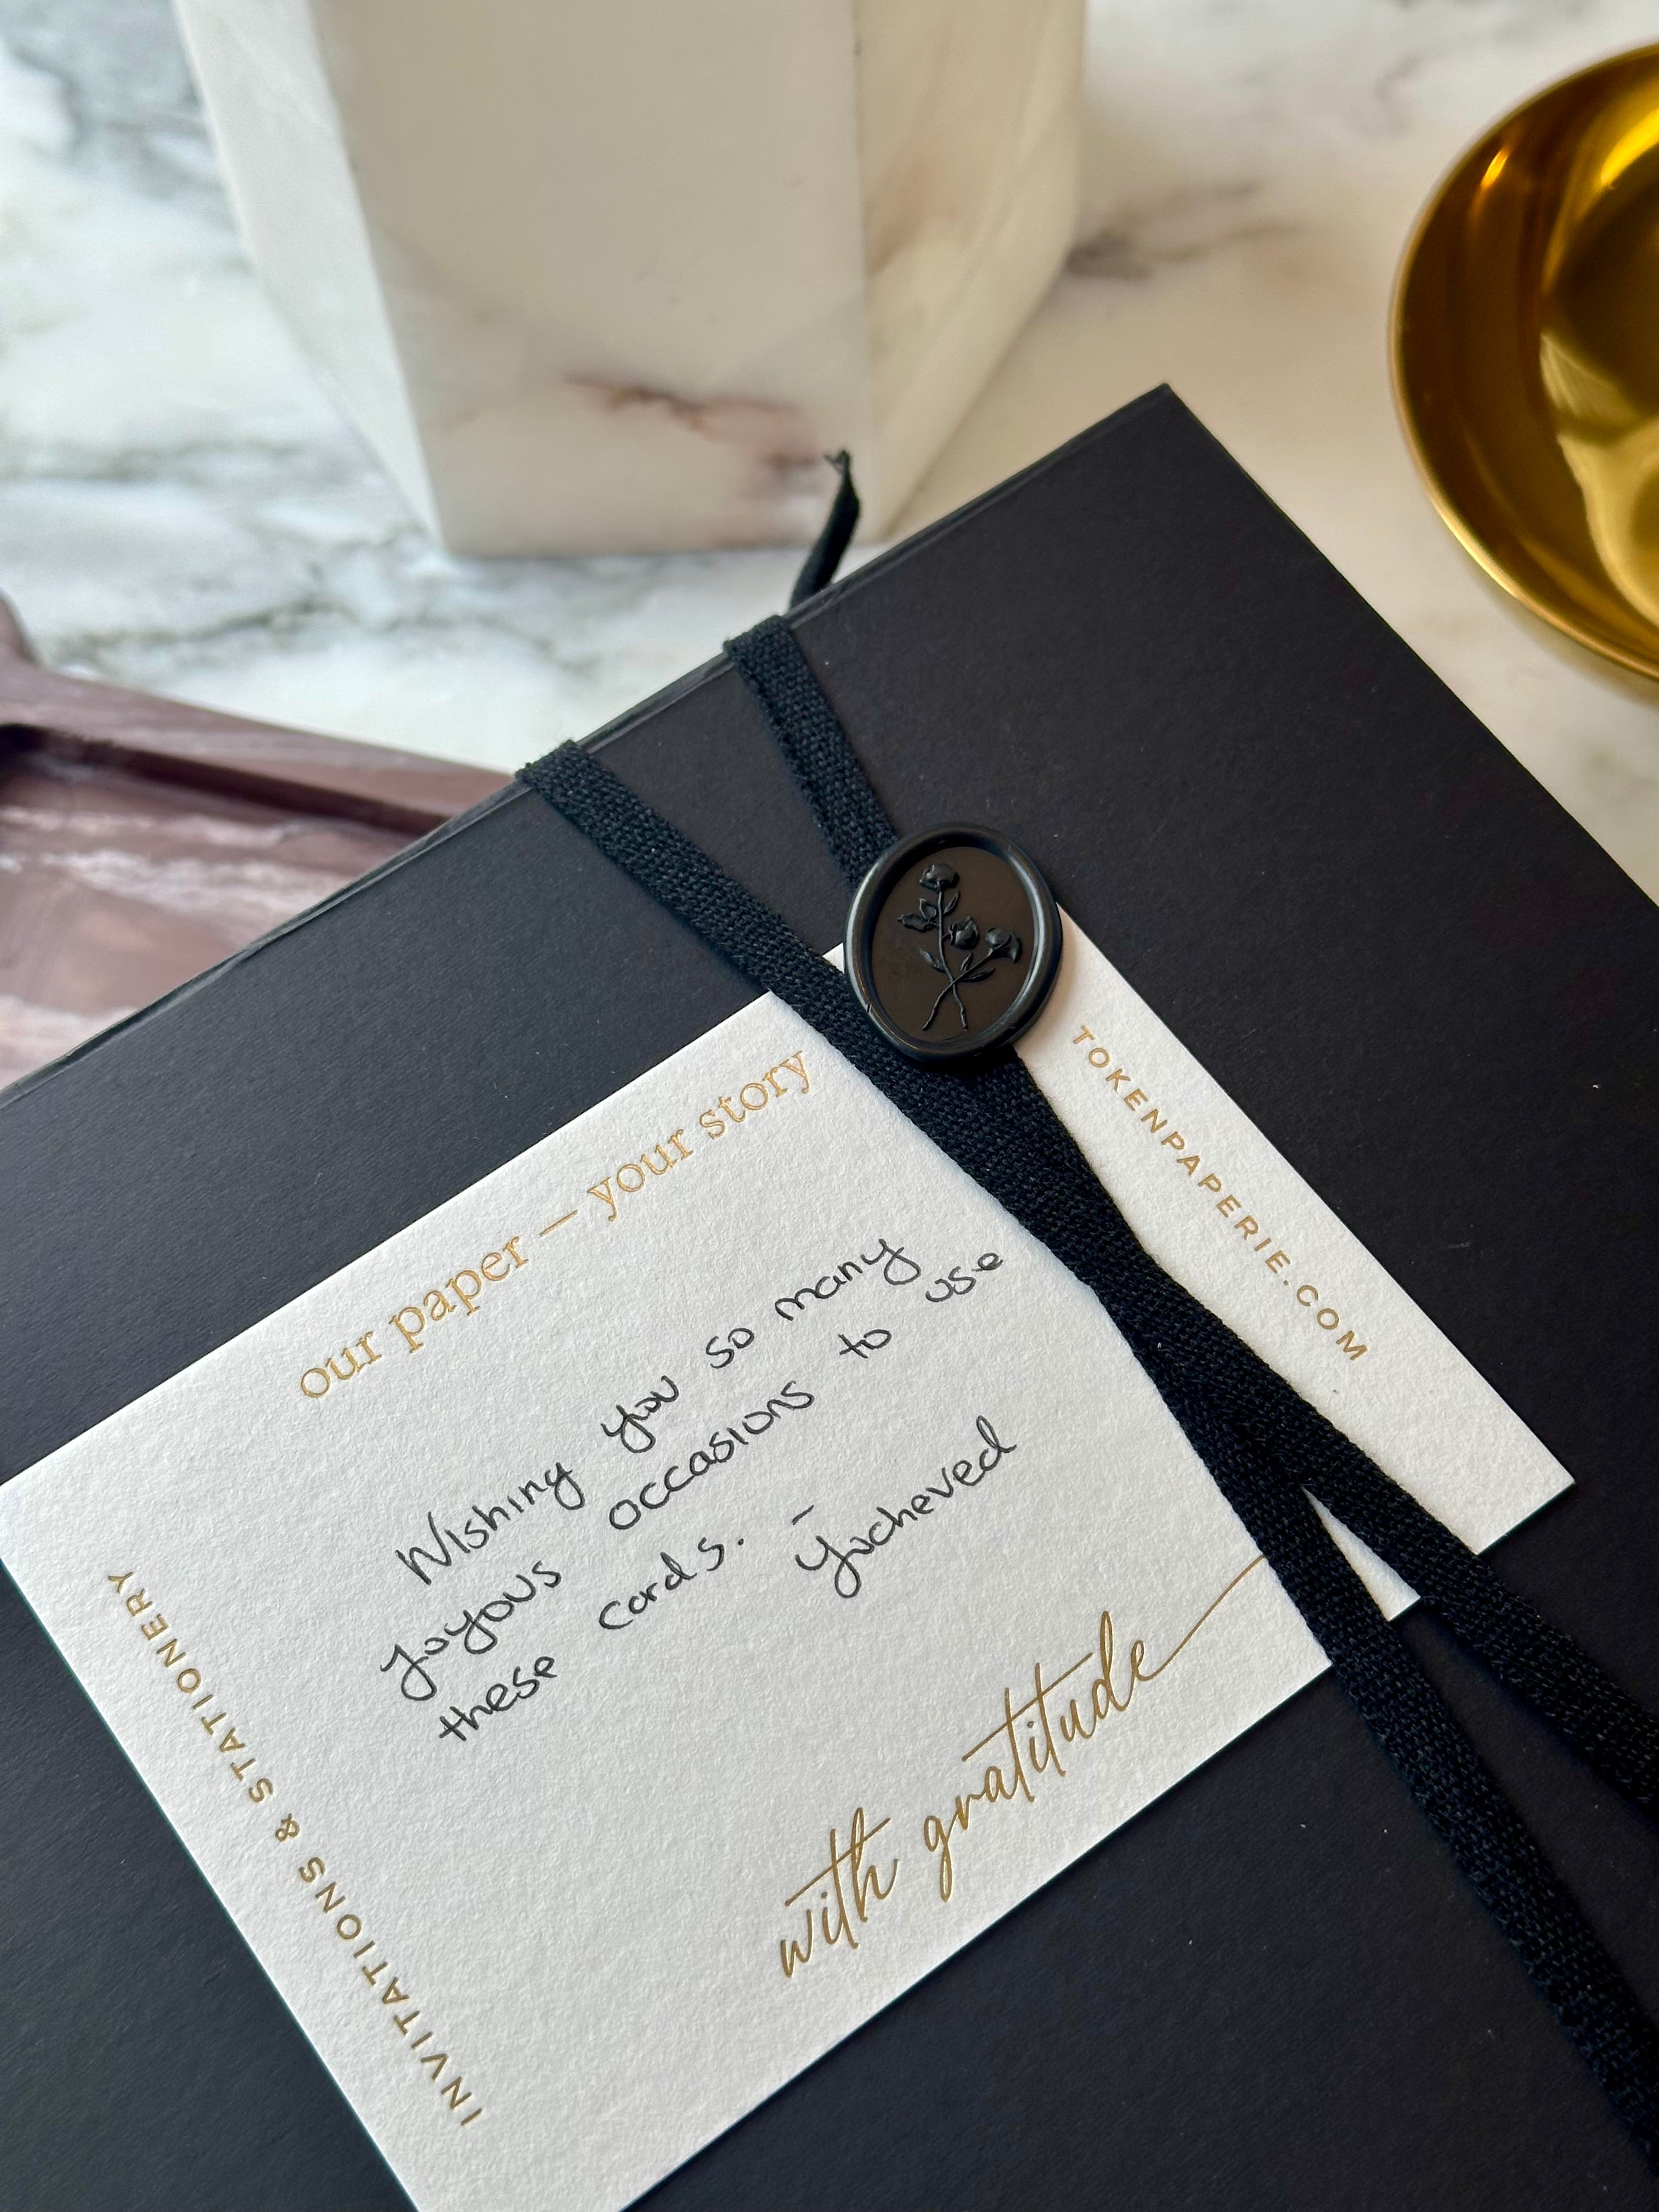 our paper — your story
TOKENPAPERIE.COM
Wishing you so many
joyous occasions to use
these cards. - Yocheved
with gratitude
INVITATIONS & STATIONERY